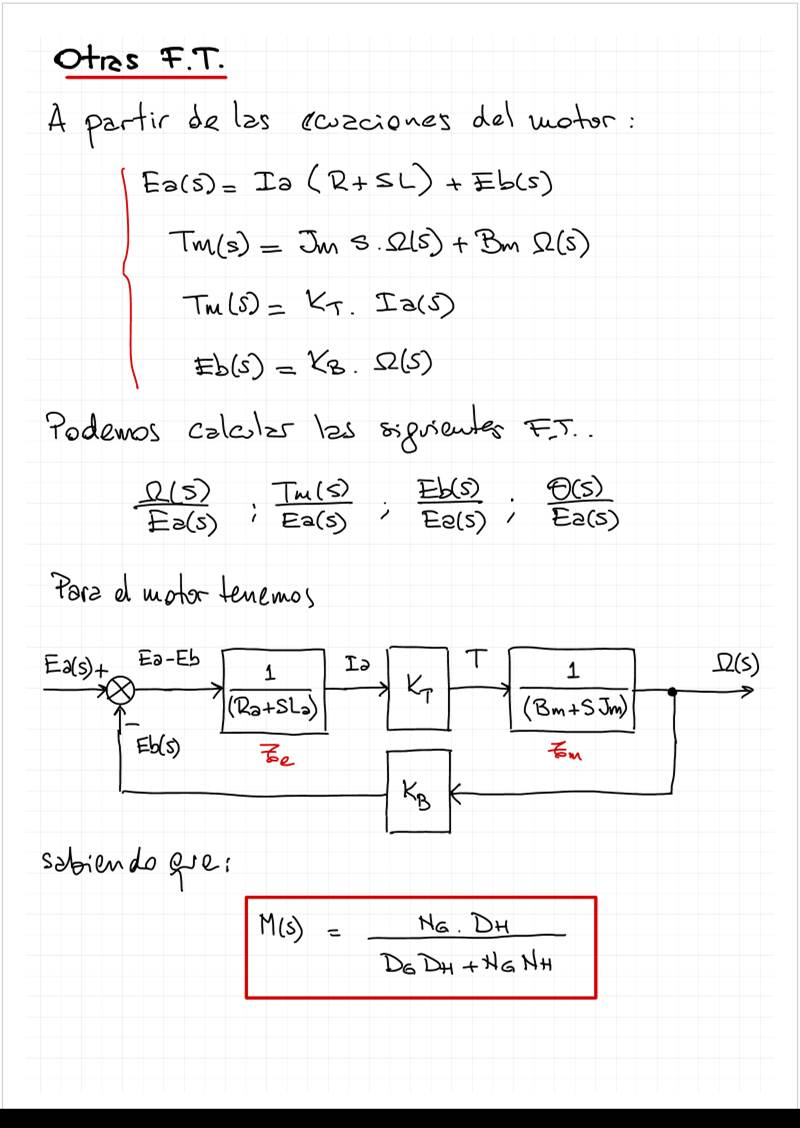 Otras F.T.
A partir de las ecuaciones del motor:
Ea(s) = Ia (R+SL) + Eb(s)
Tm(s) = Jm S. Ω(s) + Bm Ω(s)
Tm(s) = KT. Ia(s)
Eb(s) = KB. Ω(s)
Podemos calcular las siguientes F.T..
Ω(s)/Ea(s) ; Tm(s)/Ea(s) ; Eb(s)/Ea(s) ; Θ(s)/Ea(s)
Para el motor tenemos
Ea(s) + Ea-Eb 1/(Ra+SLa) Ia KT T 1/(Bm+SJm) Ω(s)
− Eb(s)
KB
sabiendo que:
M(s) = NG . DH / DG DH + NG NH